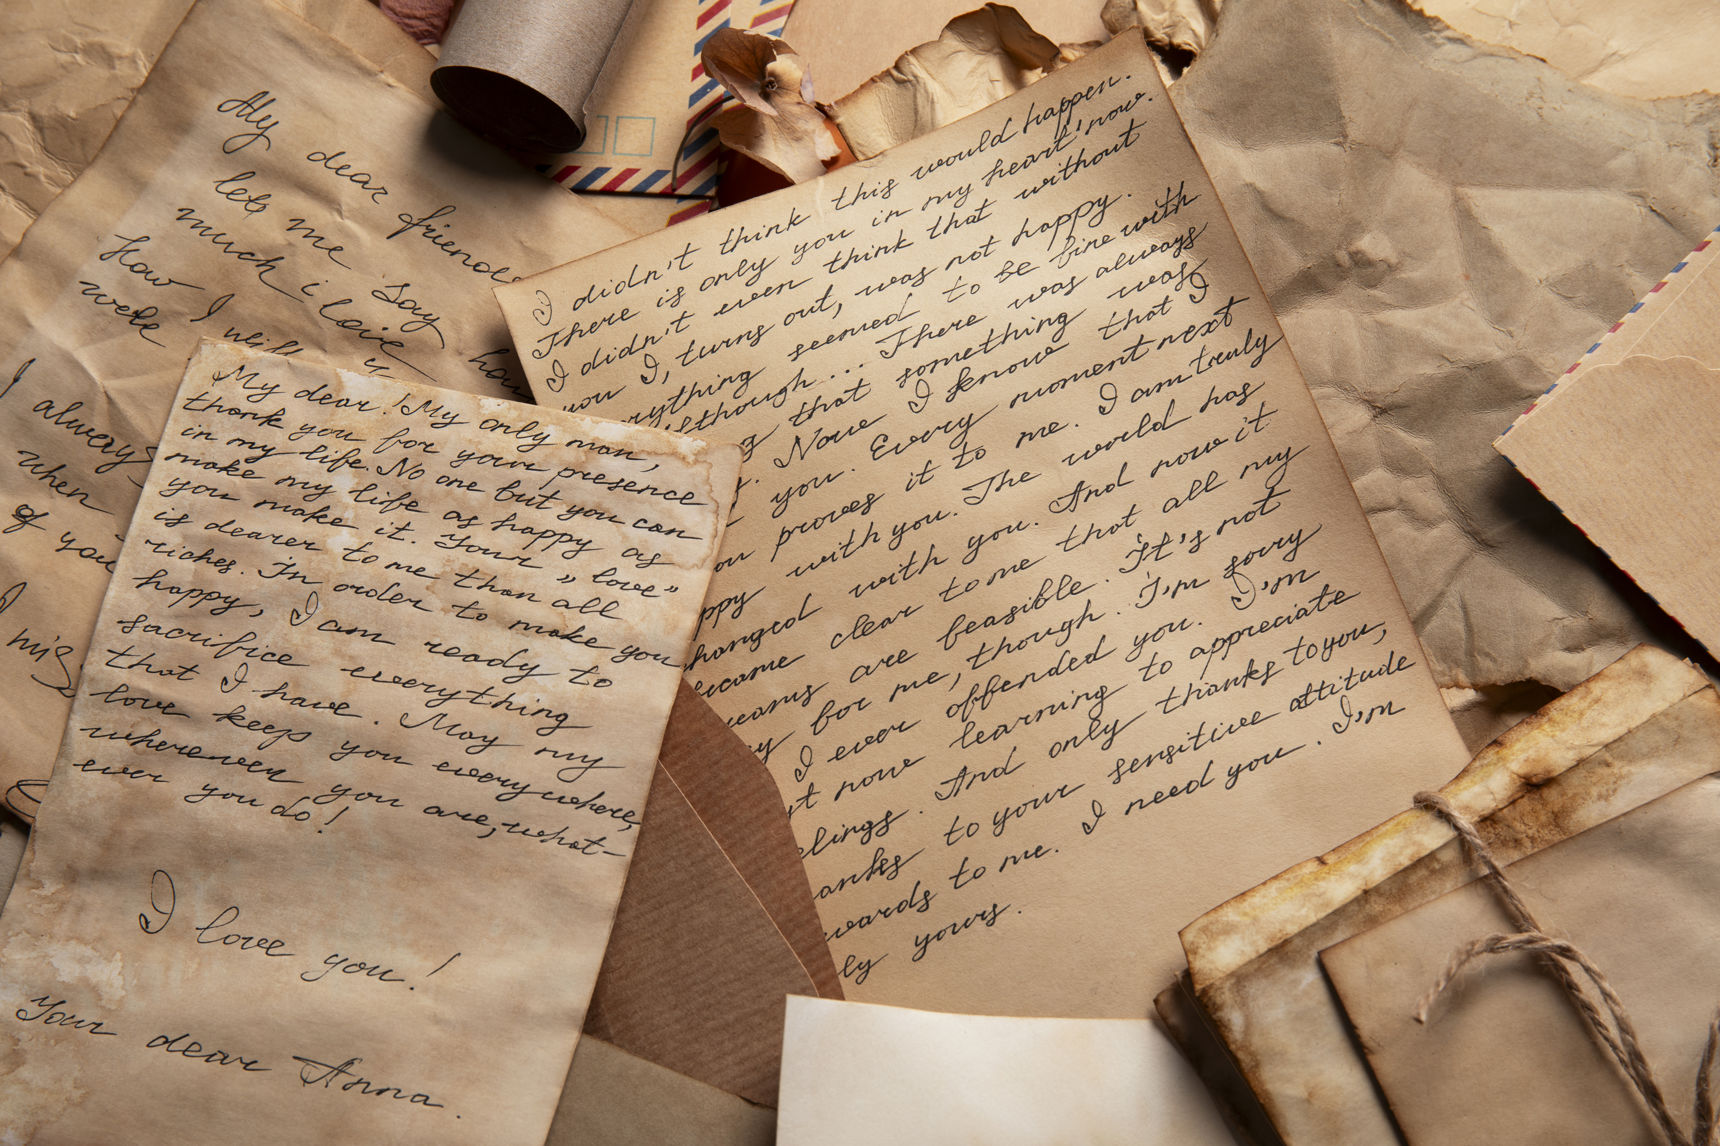 My
dear friends
let me say
much i love
how
How I will
were
I always
when
of you
I
miss
My dear! My only man,
thank you for your presence
in my life. No one but you can
make my life as happy as
you make it. Your „ love”
is dearer to me than all
riches. In order to make you
happy, I am ready to
sacrifice everything
that I have. May my
love keep you everywhere,
wherewen you are, what-
ever you do!
I love you!
Your dear Anna.
I didn't think this would happen.
There is only you in my heart now.
I didn't even think that without
you I, turns out, was not happy.
rything seemed to be fine with
lthough... There was always
g that something was
. Now I know that I
you. Every moment next
ou proves it to me. I am truly
ppy with you. The world has
hanged with you. And now it
ecame clear to me that all my
eams are feasible. It's not
y for me, though. I'm sorry
I ever offended you. I'm
t now learning to appreciate
elings. And only thanks to you,
anks to your sensitive attitude
wards to me. I need you. I'm
ly yours.